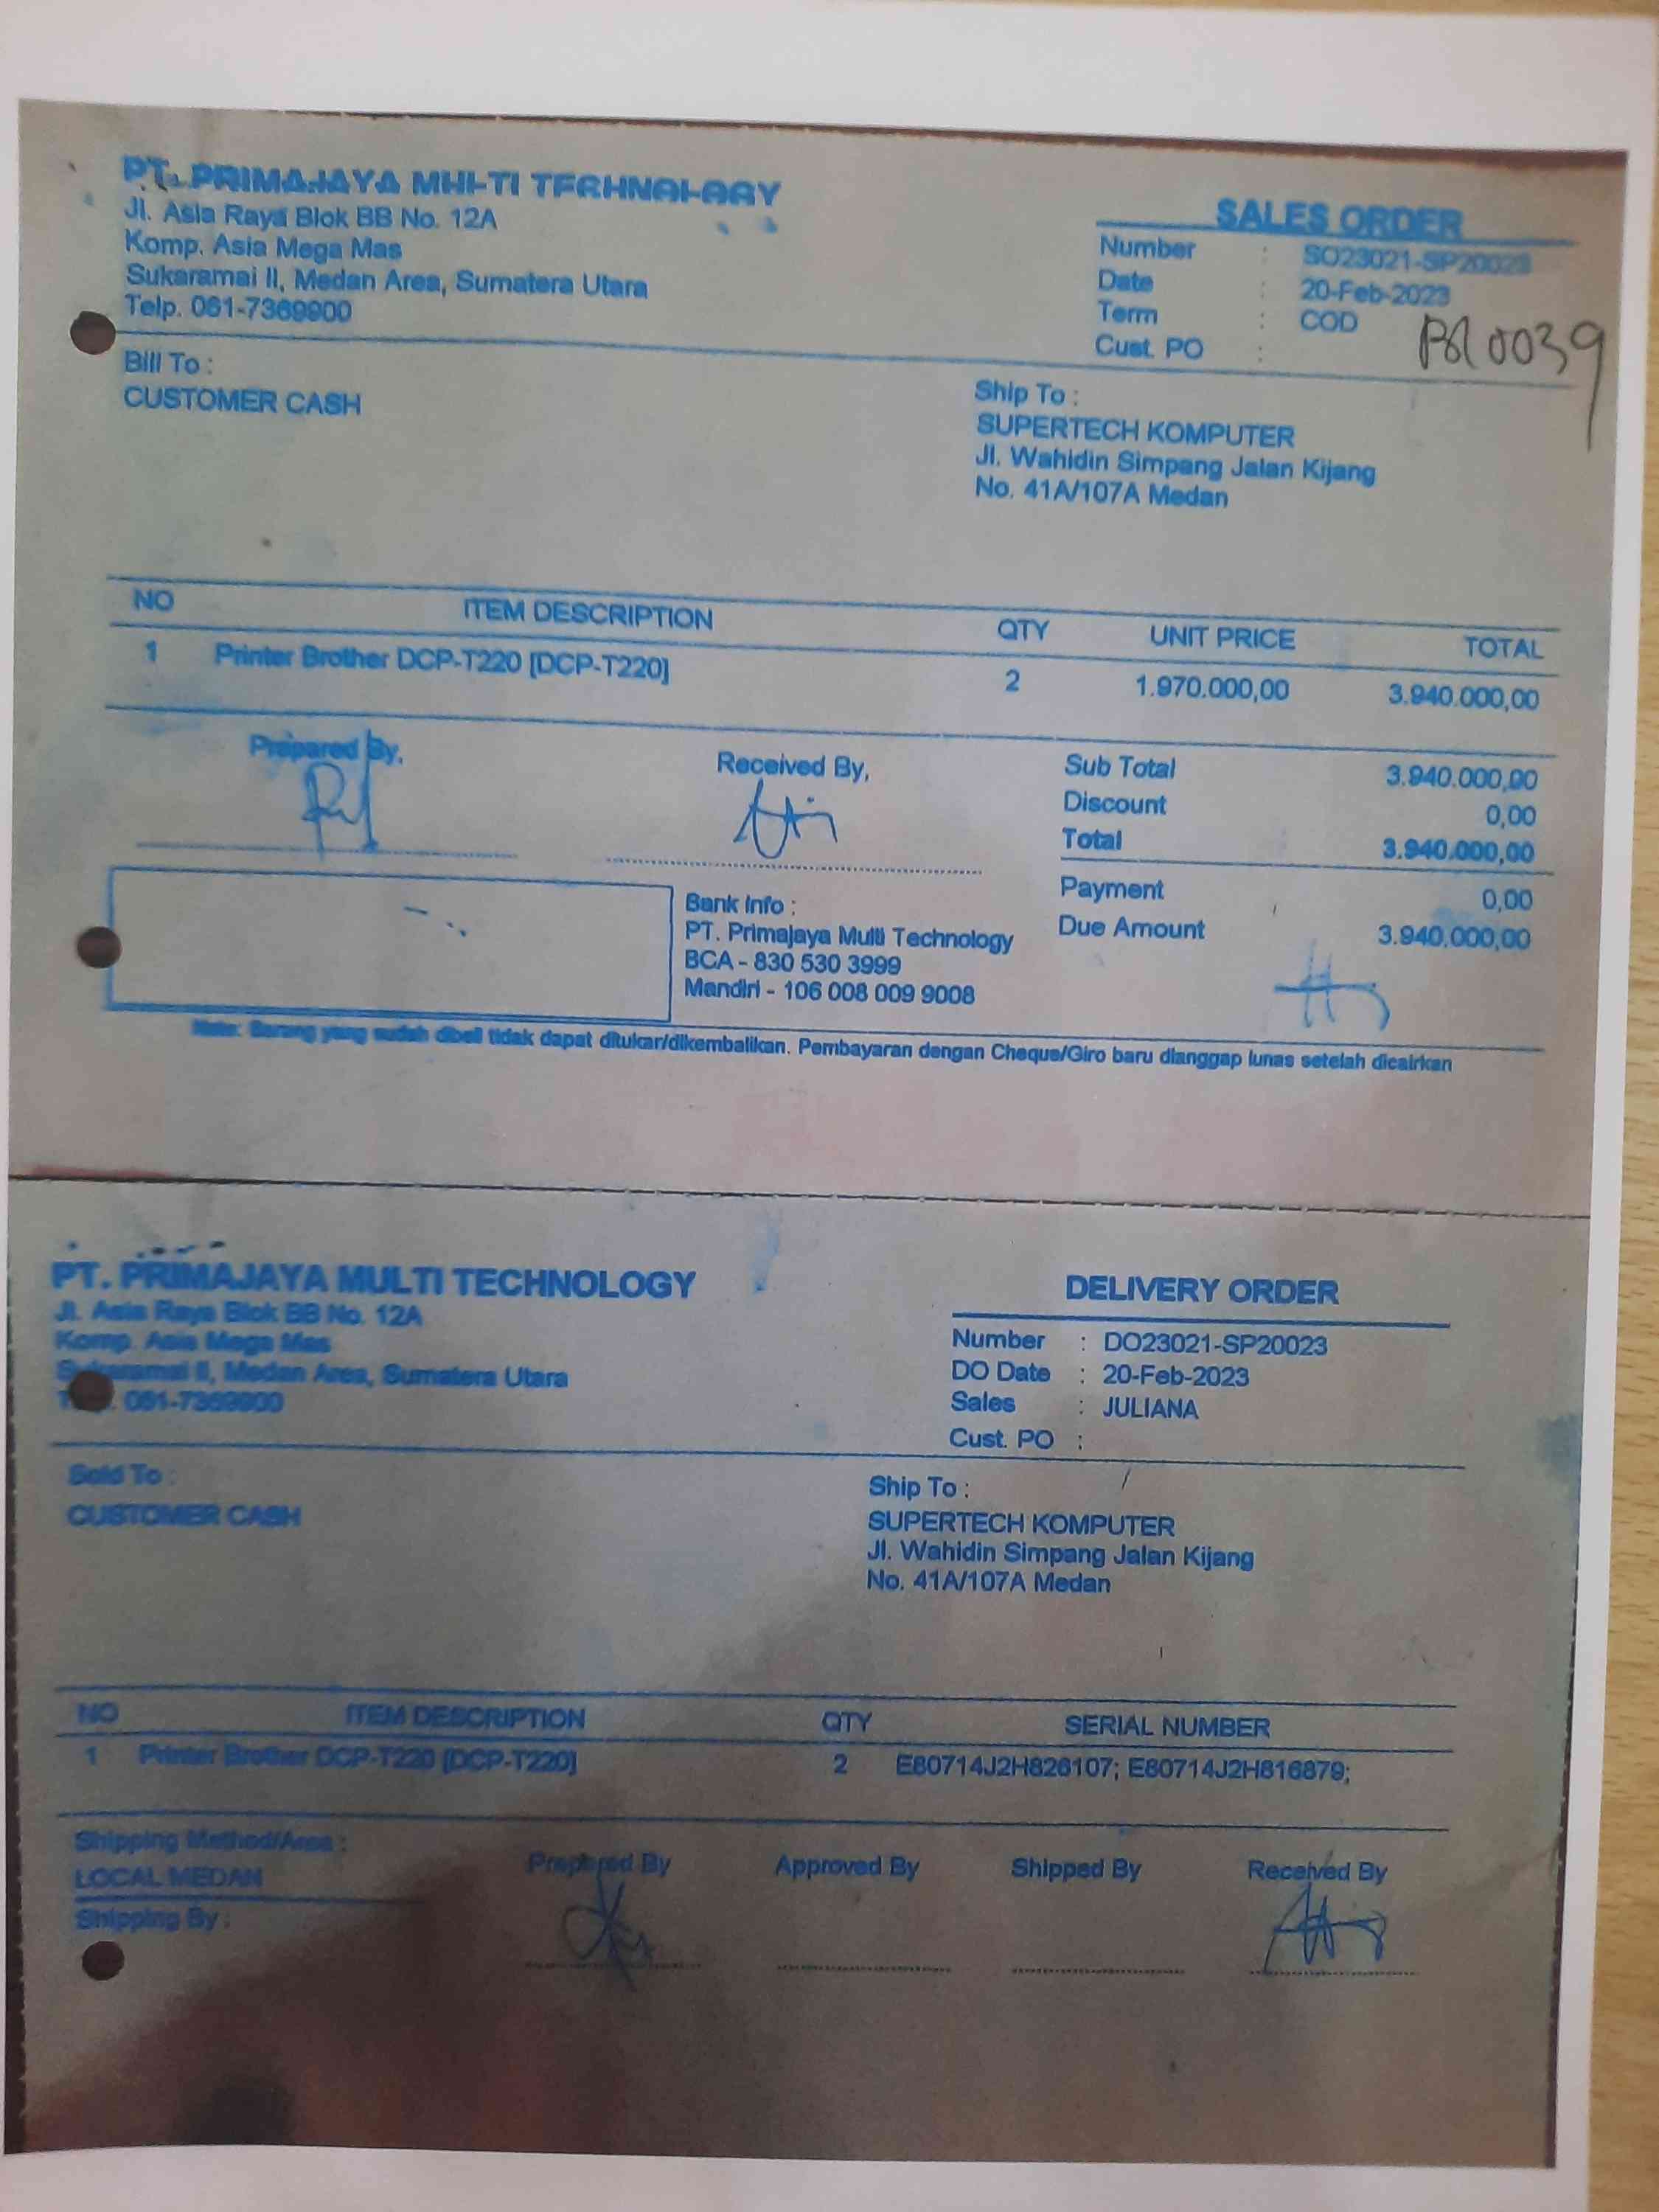 PT. PRIMAJAYA MULTI TECHNOLOGY
Jl. Asia Raya Blok BB No. 12A
Komp. Asia Mega Mas
Sukaramai II, Medan Area, Sumatera Utara
Telp. 061-7369900
SALES ORDER
Number : SO23021-SP20023
Date : 20-Feb-2023
Term : COD
Cust. PO :
0039
Bill To :
CUSTOMER CASH
Ship To :
SUPERTECH KOMPUTER
Jl. Wahidin Simpang Jalan Kijang
No. 41A/107A Medan
NO ITEM DESCRIPTION QTY UNIT PRICE TOTAL
1 Printer Brother DCP-T220 [DCP-T220] 2 1.970.000,00 3.940.000,00
Prepared By,
Received By,
Sub Total 3.940.000,00
Discount 0,00
Total 3.940.000,00
Payment 0,00
Due Amount 3.940.000,00
Bank Info :
PT. Primajaya Multi Technology
BCA - 830 530 3999
Mandiri - 106 008 009 9008
Note: Barang yang sudah dibeli tidak dapat ditukar/dikembalikan. Pembayaran dengan Cheque/Giro baru dianggap lunas setelah dicairkan
PT. PRIMAJAYA MULTI TECHNOLOGY
Jl. Asia Raya Blok BB No. 12A
Komp. Asia Mega Mas
Sukaramai II, Medan Area, Sumatera Utara
061-7369900
DELIVERY ORDER
Number : DO23021-SP20023
DO Date : 20-Feb-2023
Sales : JULIANA
Cust. PO :
Sold To :
CUSTOMER CASH
Ship To :
SUPERTECH KOMPUTER
Jl. Wahidin Simpang Jalan Kijang
No. 41A/107A Medan
NO ITEM DESCRIPTION QTY SERIAL NUMBER
1 Printer Brother DCP-T220 [DCP-T220] 2 E80714J2H826107; E80714J2H816879;
Shipping Method/Area :
LOCAL MEDAN
Shipping By :
Prepared By
Approved By
Shipped By
Received By